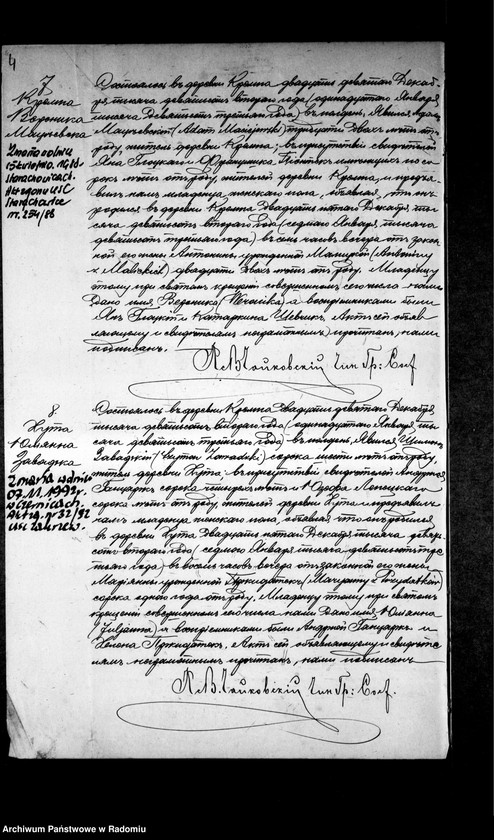 4
7
Кремна
Вероника
Маціевска
Zmarła dnia
Starachowicach.
Akt zgonu USC
Starachowice
nr. 254/88
Состоялось въ деревни Кремна двадцать девятаго Декаб-
ря тысяча девятьсотъ втораго года (одинадцатаго Января
тысяча девятьсотъ третьяго года) въ полдень, Явился Адамъ
(Adam) тридцати двухъ лѣтъ отъ
роду, житель деревни Кремна; въ присутствіи свидѣтелей
Яна и Францишка имѣющихъ по со-
рокъ лѣтъ отъ роду жителей деревни Кремна, и предъя-
вилъ намъ младенца женскаго пола, объявляя, что онъ
родился въ деревни Кремна двадцать пятаго Декабря ты-
сяча девятьсотъ втораго года (седмаго Января тысяча
девятьсотъ третьяго года) въ семь часовъ вечера отъ закон-
ной его жены Антонины урожденной (Antoniny
z) двадцати двухъ лѣтъ отъ роду. Младенцу
тому при святомъ крещеніи совершенномъ сего числа нами
дано имя Вероника (Weronika) а воспріемниками были
Янъ и Катаржина Актъ сей объяв-
ляющему и свидѣтелямъ неграмотнымъ прочтенъ, нами
подписанъ.
Чин Гр: Сост
8.
Хута
Юліянна
Завадзка
Zmarła w dniu
07.11.1992r.
Akt zg. nr 32/92
Состоялось въ деревни Кремна двадцать девятаго Декабря,
тысяча девятьсотъ втораго года (одинадцатаго Января ты-
сяча девятьсотъ третьяго года) въ полдень, Явился Шимонъ
Завадзкій (Szymon Zawadzki) сорока шести лѣтъ отъ роду,
житель деревни Хута, въ присутствіи свидѣтелей Андрея
Ганцаржъ сорока лѣтъ и Юзефа
сорока лѣтъ отъ роду, жителей деревни Хута и предъявилъ
намъ младенца женскаго пола, объявляя, что онъ родился
въ деревни Хута двадцать пятаго Декабря тысяча девять-
сотъ втораго года (седмаго Января тысяча девятьсотъ тре-
тьяго года) въ восемь часовъ вечера отъ законной его жены
Маріянны урожденной (Maryanny z)
сорока одного года отъ роду. Младенцу тому при святомъ
крещеніи совершенномъ сего числа нами дано имя Юліянна
(Julianna) и воспріемниками были Андрей Ганцаржъ и
Актъ сей объявляющему и свидѣте-
лямъ неграмотнымъ прочтенъ, нами подписанъ
Чин Гр: Сост.
Archiwum Państwowe w Radomiu